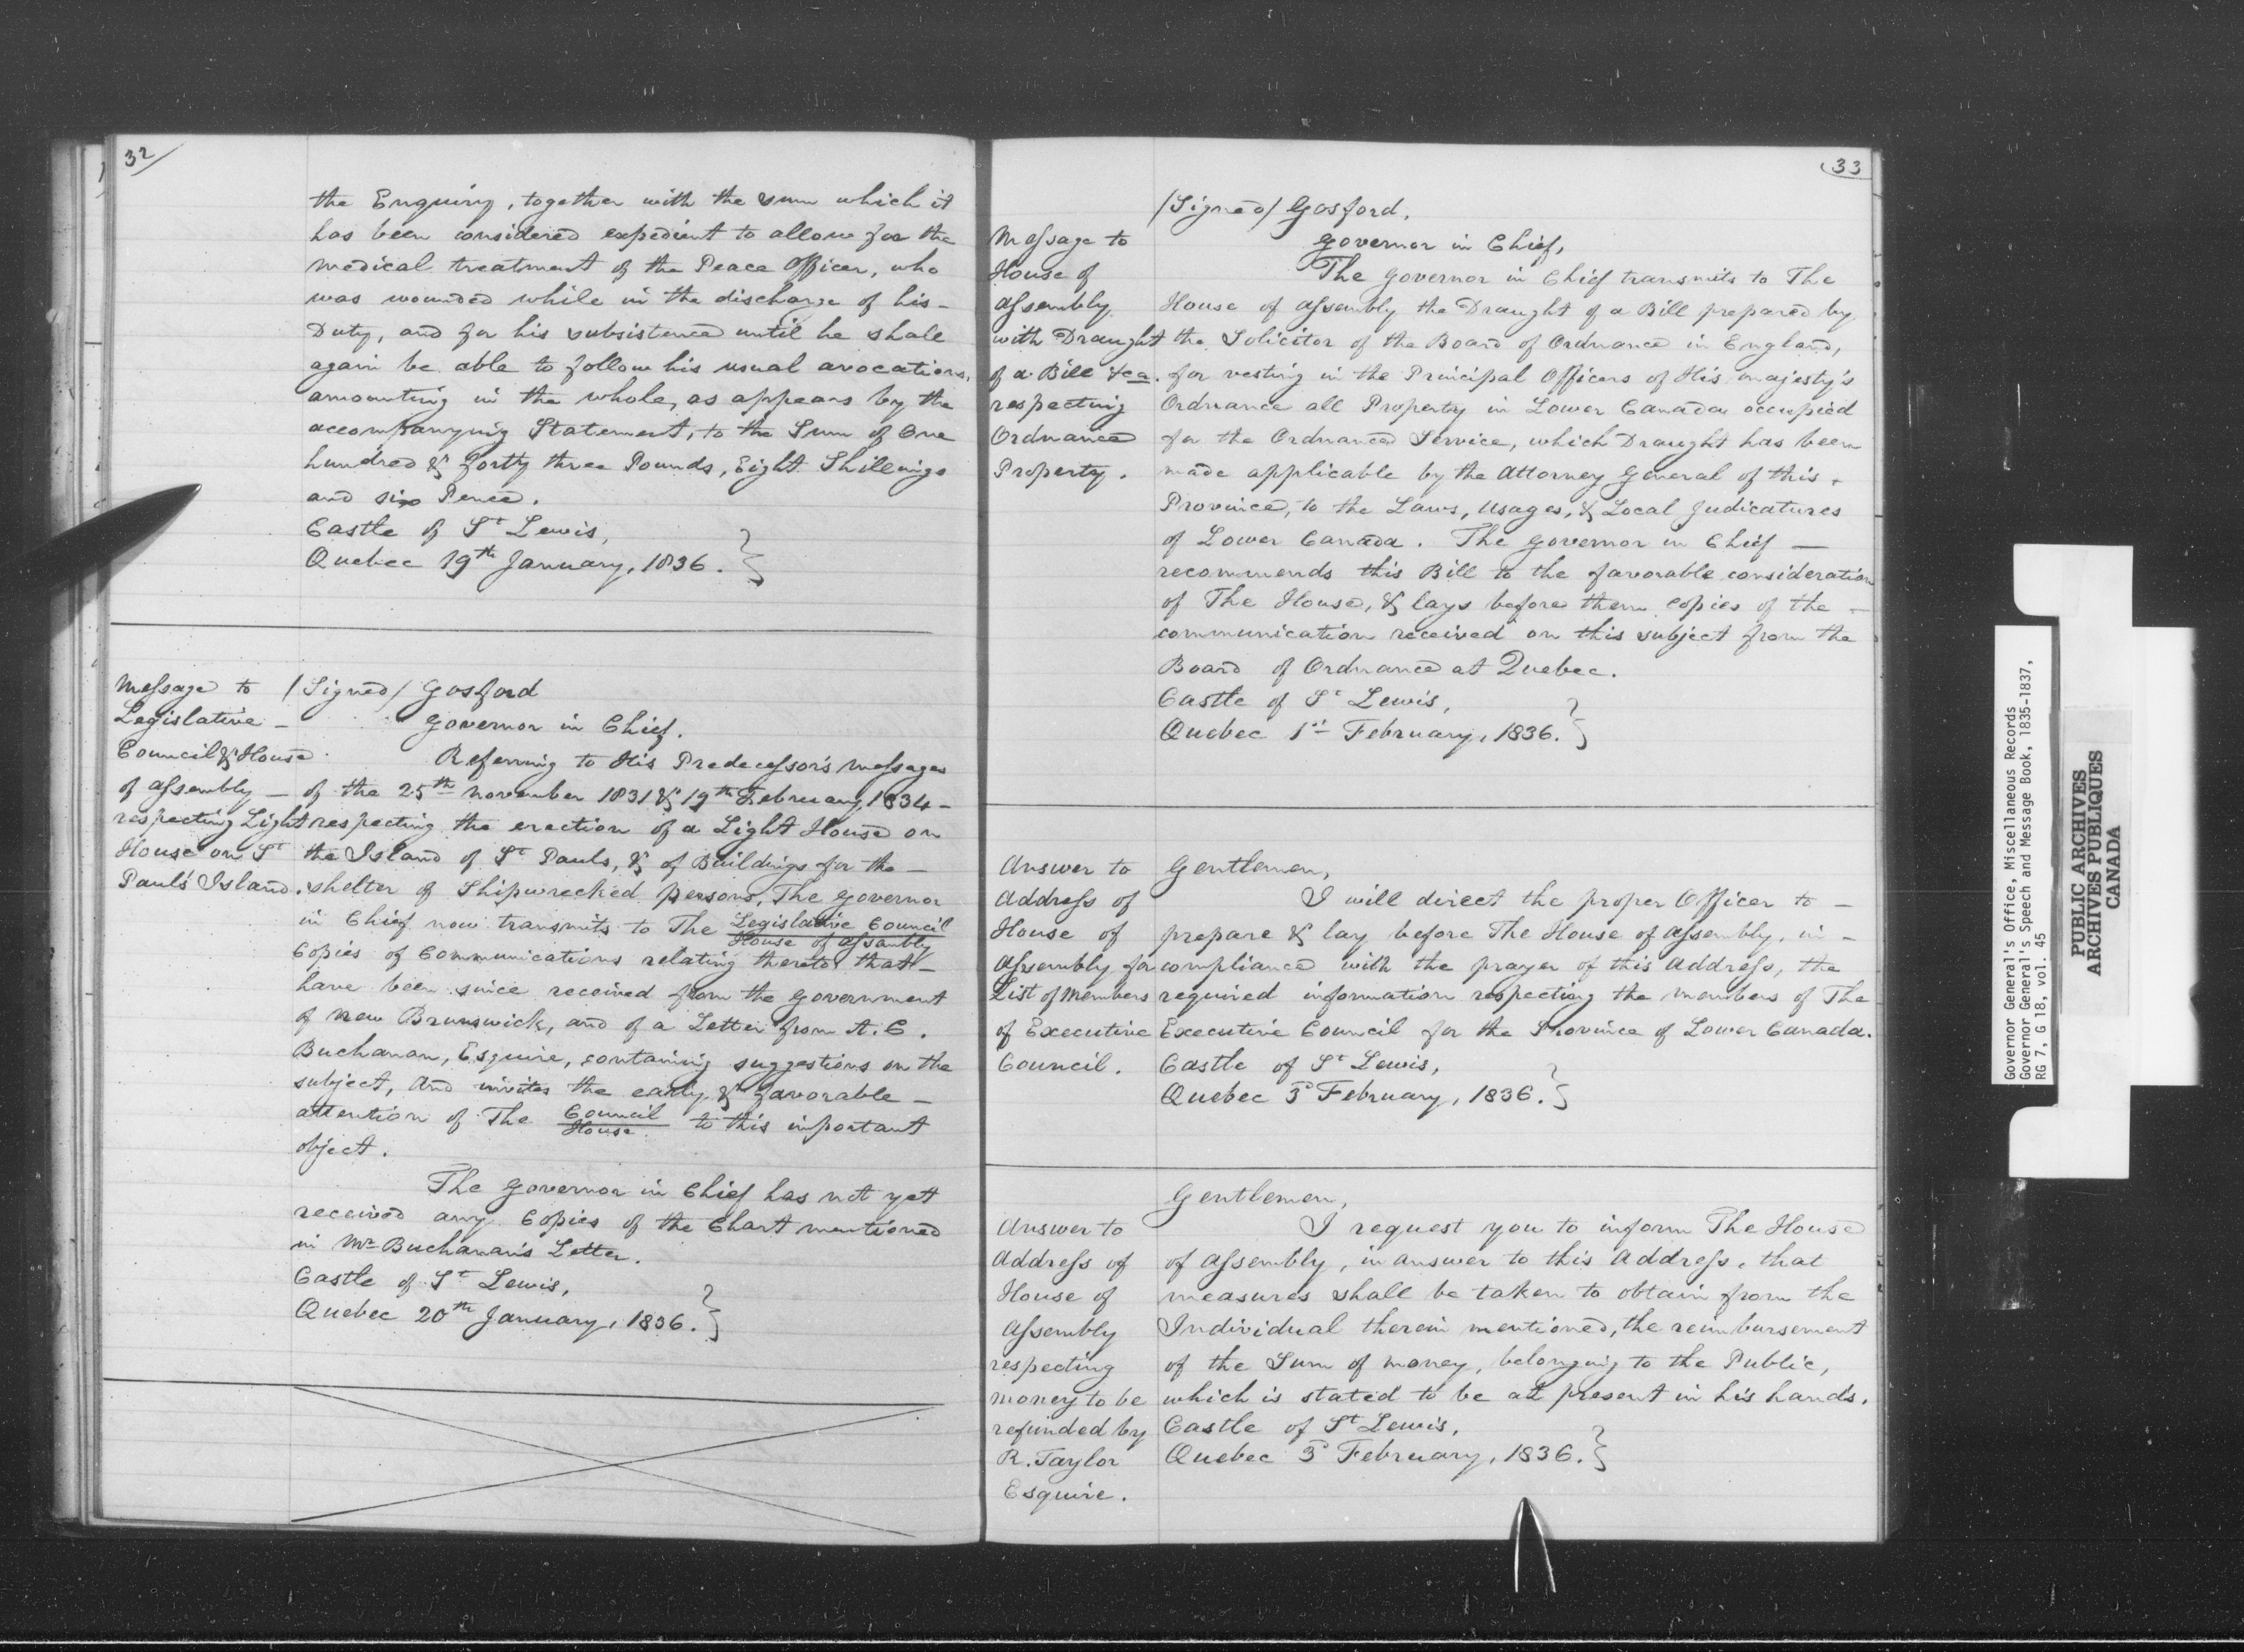 32
the Enquiry, together with the sum which it
has been considered expedient to allow for the
medical treatment of the Peace Officer, who
was wounded while in the discharge of his -
Duty, and for his subsistence until he shall
again be able to follow his usual avocations,
amounting in the whole, as appears by the
accompanying Statement, to the Sum of One
hundred & forty three Pounds, Eight Shillings
and six Pence.
Castle of St Lewis,
Quebec 19th January, 1836. }
Message to
Legislative -
Council & House
of Assembly -
respecting Light
House on St
Paul's Island.
/Signed/ Gosford
Governor in Chief.
Referring to His Predecessor's Messages
of the 25th November 1831 & 19th February, 1834 -
respecting the erection of a Light House on
the Island of St Pauls, & of Buildings for the -
shelter of Shipwrecked persons, The Governor
in Chief now transmits to The Legislative Council
House of Assembly
Copies of Communications relating thereto that -
have been since received from the Government
of New Brunswick, and of a Letter from A. C.
Buchanan, Esquire, containing suggestions on the
subject, and invites the early & favorable -
attention of The Council
House to this important
object.
The Governor in Chief has not yet
received any Copies of the Chart mentioned
in Mr Buchanan's Letter.
Castle of St Lewis,
Quebec 20th January, 1836. }
33
Message to
House of
Assembly
with Draught
of a Bill &ca.
respecting
Ordnance
Property.
/Signed/ Gosford,
Governor in Chief,
The Governor in Chief transmits to The
House of Assembly the Draught of a Bill prepared by
the Solicitor of the Board of Ordnance in England,
for vesting in the Principal Officers of His Majesty's
Ordnance all Property in Lower Canada occupied
for the Ordnance Service, which Draught has been
made applicable by the Attorney General of this -
Province, to the Laws, Usages, & Local Judicatures
of Lower Canada. The Governor in Chief -
recommends this Bill to the favorable consideration
of The House, & lays before them copies of the -
communication received on this subject from the
Board of Ordnance at Quebec.
Castle of St Lewis,
Quebec 1st February, 1836. }
Answer to
Address of
House of
Assembly for
List of Members
of Executive
Council.
Gentlemen,
I will direct the proper Officer to -
prepare & lay before The House of Assembly, in -
compliance with the prayer of this Address, the
required information respecting the members of The
Executive Council for the Province of Lower Canada.
Castle of St Lewis,
Quebec 3d February, 1836. }
Answer to
Address of
House of
Assembly
respecting
money to be
refunded by
R. Taylor
Esquire.
Gentlemen,
I request you to inform The House
of Assembly, in answer to this Address, that
measures shall be taken to obtain from the
Individual therein mentioned, the reimbursement
of the Sum of money, belonging to the Public,
which is stated to be at present in his hands.
Castle of St Lewis,
Quebec 3d February, 1836. }
Governor General's Office, Miscellaneous Records
Governor General's Speech and Message Book, 1835-1837,
RG 7, G 18, vol. 45
PUBLIC ARCHIVES
ARCHIVES PUBLIQUES
CANADA